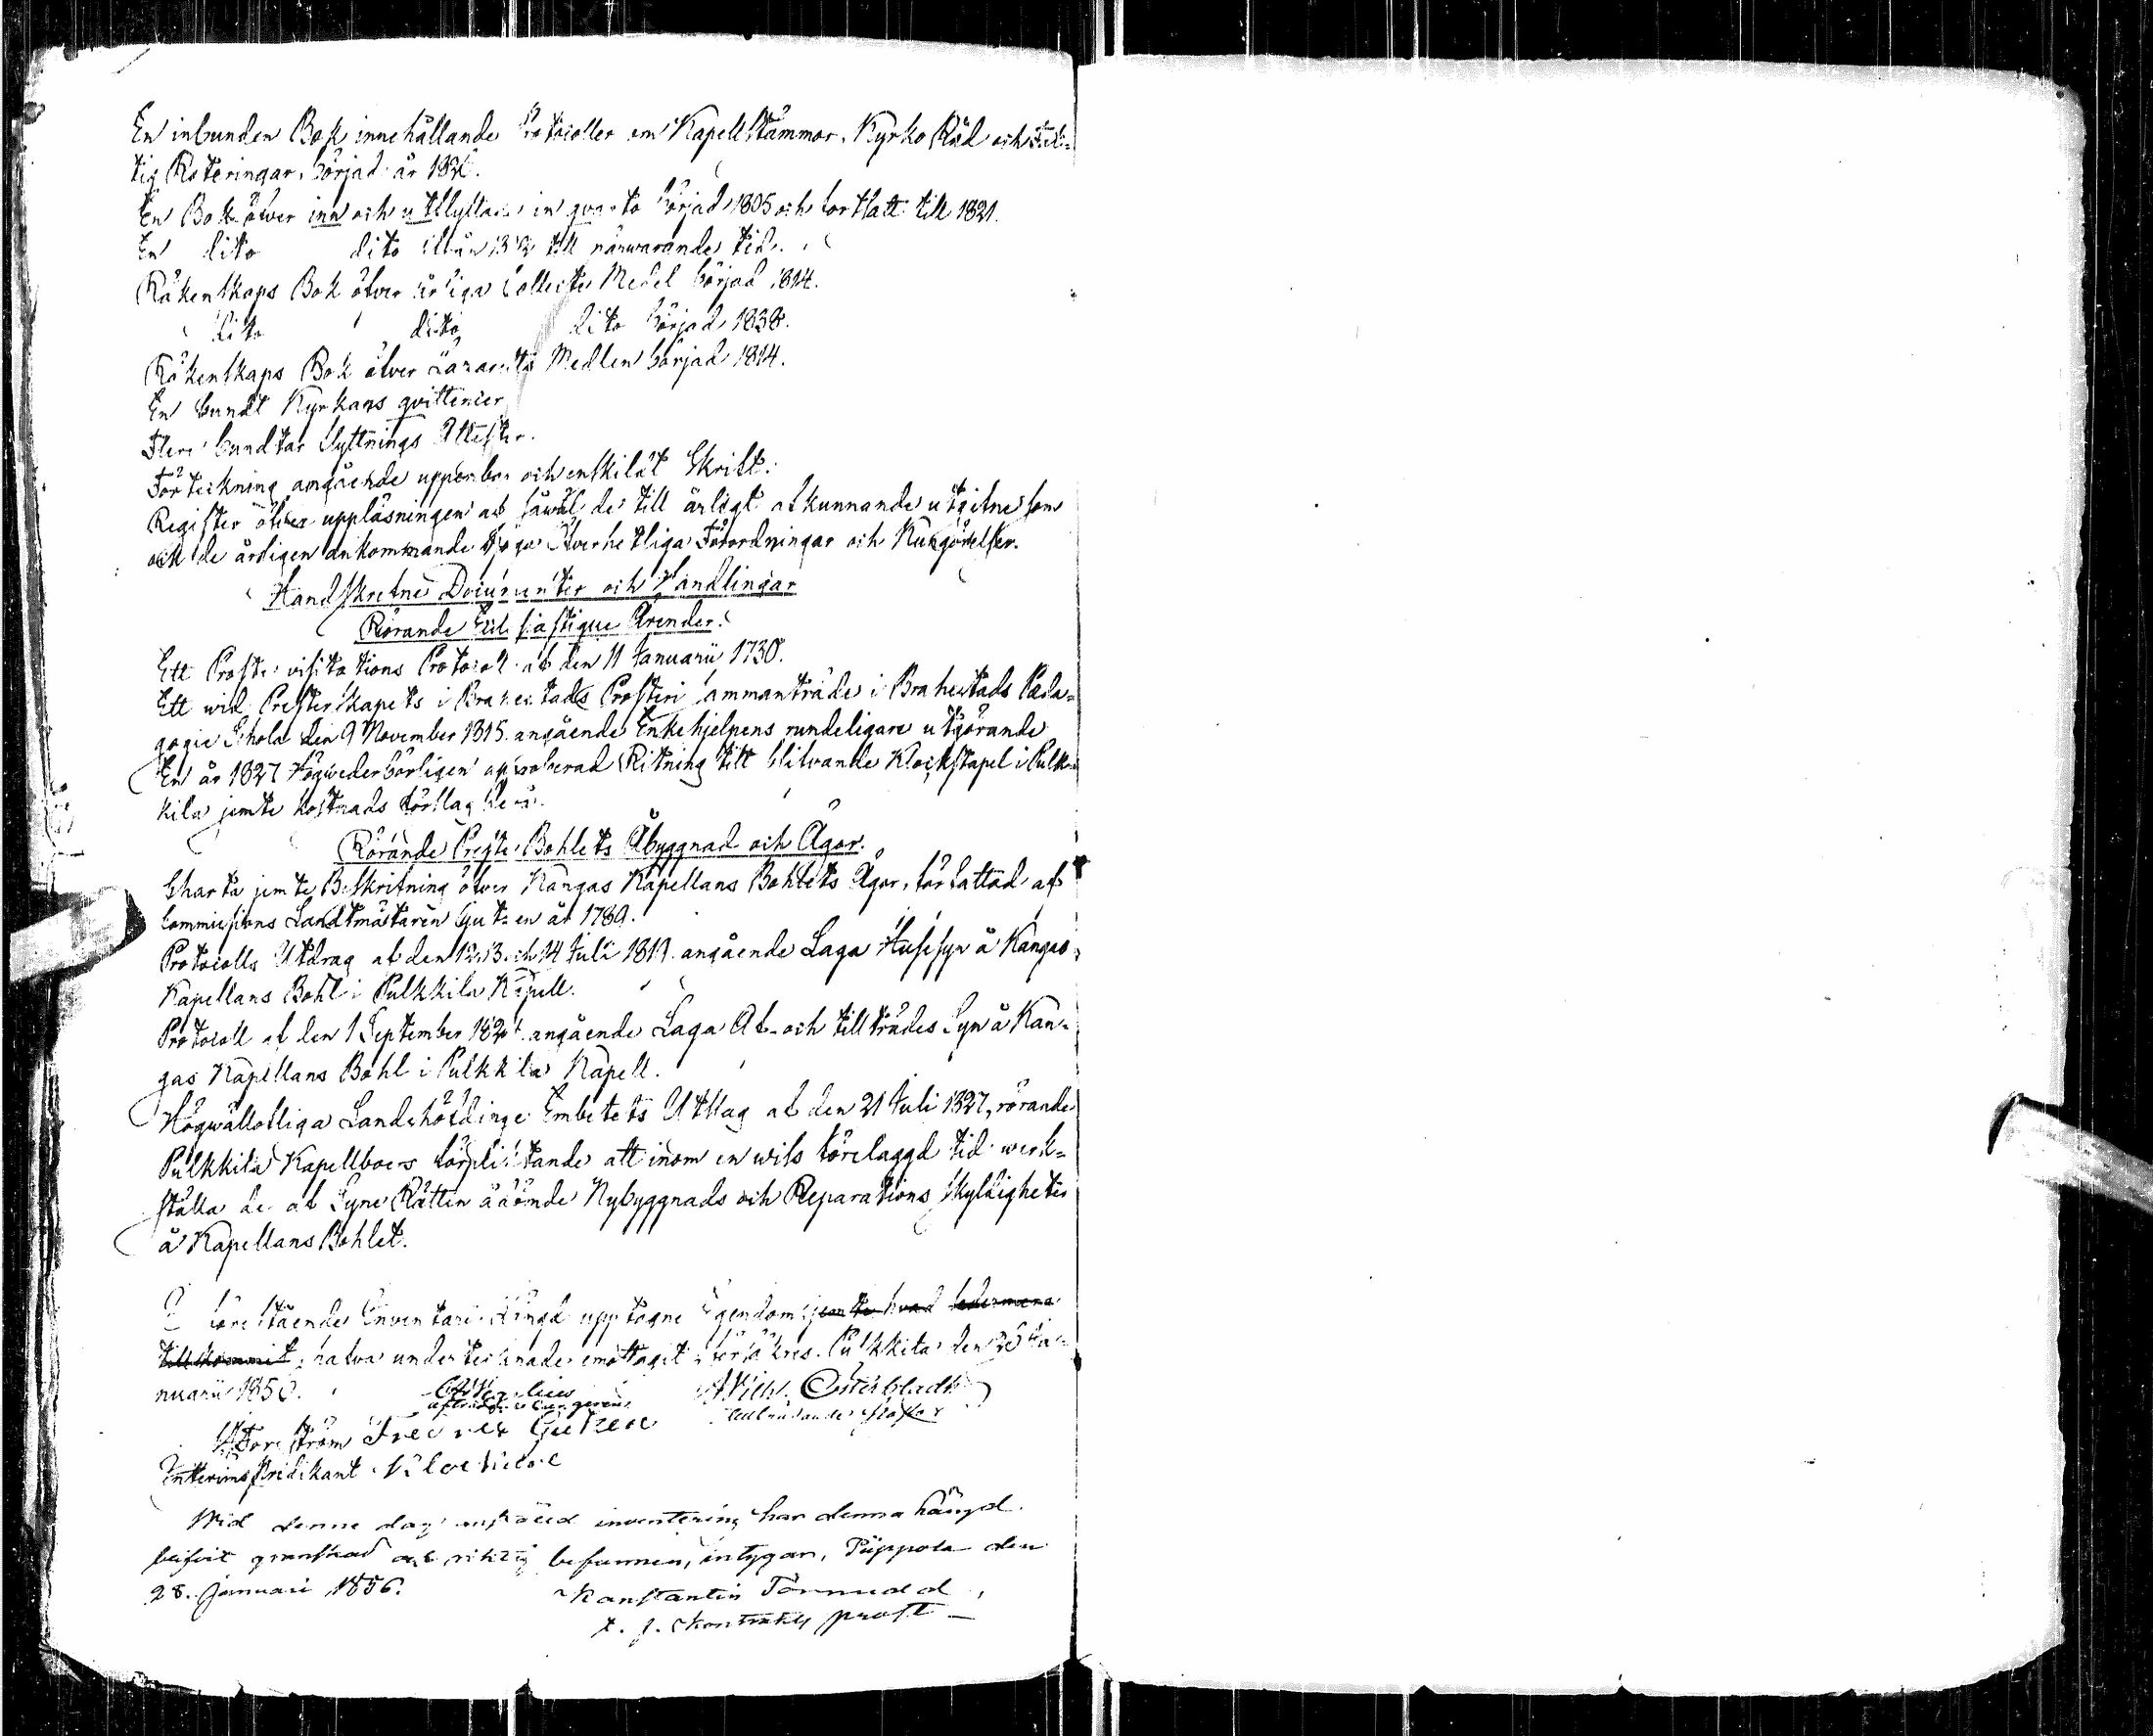 En inbunden Bok innehållande Protocoller om Kapell Stämmor, Kyrko Råd och
tig Roteringar, börjad år
En Bok öfver inn och utflyttade in qvarto börjad 1805 och fortsatt till 1821.
En dito dito ifrån till närwarande tid.
Räkenskaps Bok öfver årliga Collecte Medel börjad 1814.
dito dito dito börjad 1838.
Räkenskaps Bok öfver Lazaretts Medlen börjad 1814.
En bundt Kyrkans qvittencer
Flere bundtar flyttnings Attester.
Förteckning angående uppenbar och enskildt Skrift.
Register öfver uppläsningen af såwäl de till årligt afkunnande utgifne som
ock de årligen ankommande höga Öfverhetliga Förordningar och Kungörelser.
Handskrefne Documenter och Handlingar
Rörande Ecclesiastique Ärender.
Ett Proste visitations Protocoll af den 11 Januarii 1730.
Ett wid Presterskapets i Brahestads Prosteri sammanträde i Brahestads Pæda-
gogie Schola den 9 November 1815 angående Enkehjelpens rundeligare utgörande
En år 1827 Högwederbörligen approberad Ritning till blifvande Klockstapel i Pulk-
kila jemte kostnads förslag derå.
Rörande Preste Bohlets Åbyggnad och Ägor.
Charta jemte Beskrifning öfver Kangas Kapellans Bohlets Ägor, författad af
Commissions Landtmätaren år 1789.
Protocolls Utdrag af den 12, 13 och 14 Juli 1819 angående Laga Husesyn å Kangas
Kapellans Bohl i Pulkkila Kapell.
Protocoll af den 1 September angående Laga Af- och tillträdes Syn å Kan-
gas Kapellans Bohl i Pulkkila Kapell.
Högwällofliga Landshöfdinge Embetets Utslag af den 21 Juli 1827, rörande
Pulkkila Kapellboers förpligtande att inom en wiss förelaggd tid werk-
ställa de af Syne Rätten ådömde Nybyggnads och Reparations skyldigheter
å Kapellans Bohlet.
I förestående Inventarii Längd upptagne Egendom jemte hvad sedermera
tillkommit, hafva undertecknade emottagit, försäkras. Pulkkila den Ja-
nuarii 1850. Wilh. Österbladh
tillträdande
Forsström Gutzen
Interims Predikant
Wid denne dag anstäld inventering har denna längd
blifvit granskad och riktig befunnen, intygar, Piippola den
28. Januari 1856. Konstantin Törnudd
t. f. Kontrakts prost